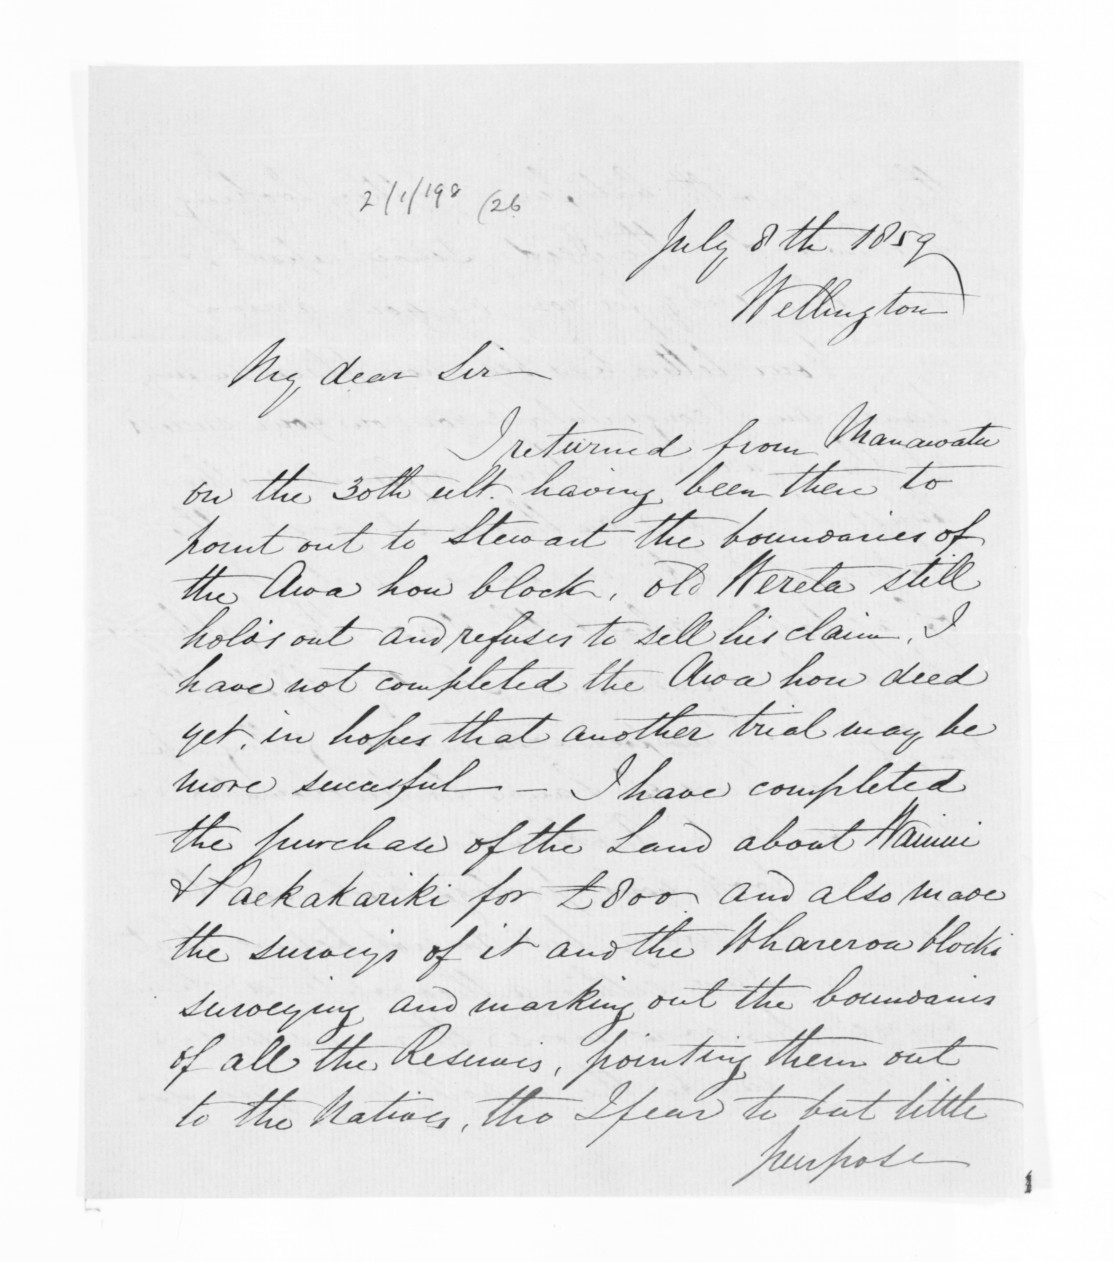 2/1/198 (26
July 8th 1859
Wellington
My dear Sir
I returned from Manawatu
on the 30th ult. having been there to
point out to Stewart the boundaries of
the Awa hou block, old Wereta still
holds out and refuses to sell his claim. I
have not completed the Awa hou deed
yet, in hopes that another trial may be
more sucessful — I have completed
the purchase of the Land about Wainui
& Paekakariki for £800 and also made
the surveys of it and the Wharerou blocks
surveying and marking out the boundaries
of all the Reserves, pointing them out
to the Natives, tho I fear to but little
purpose